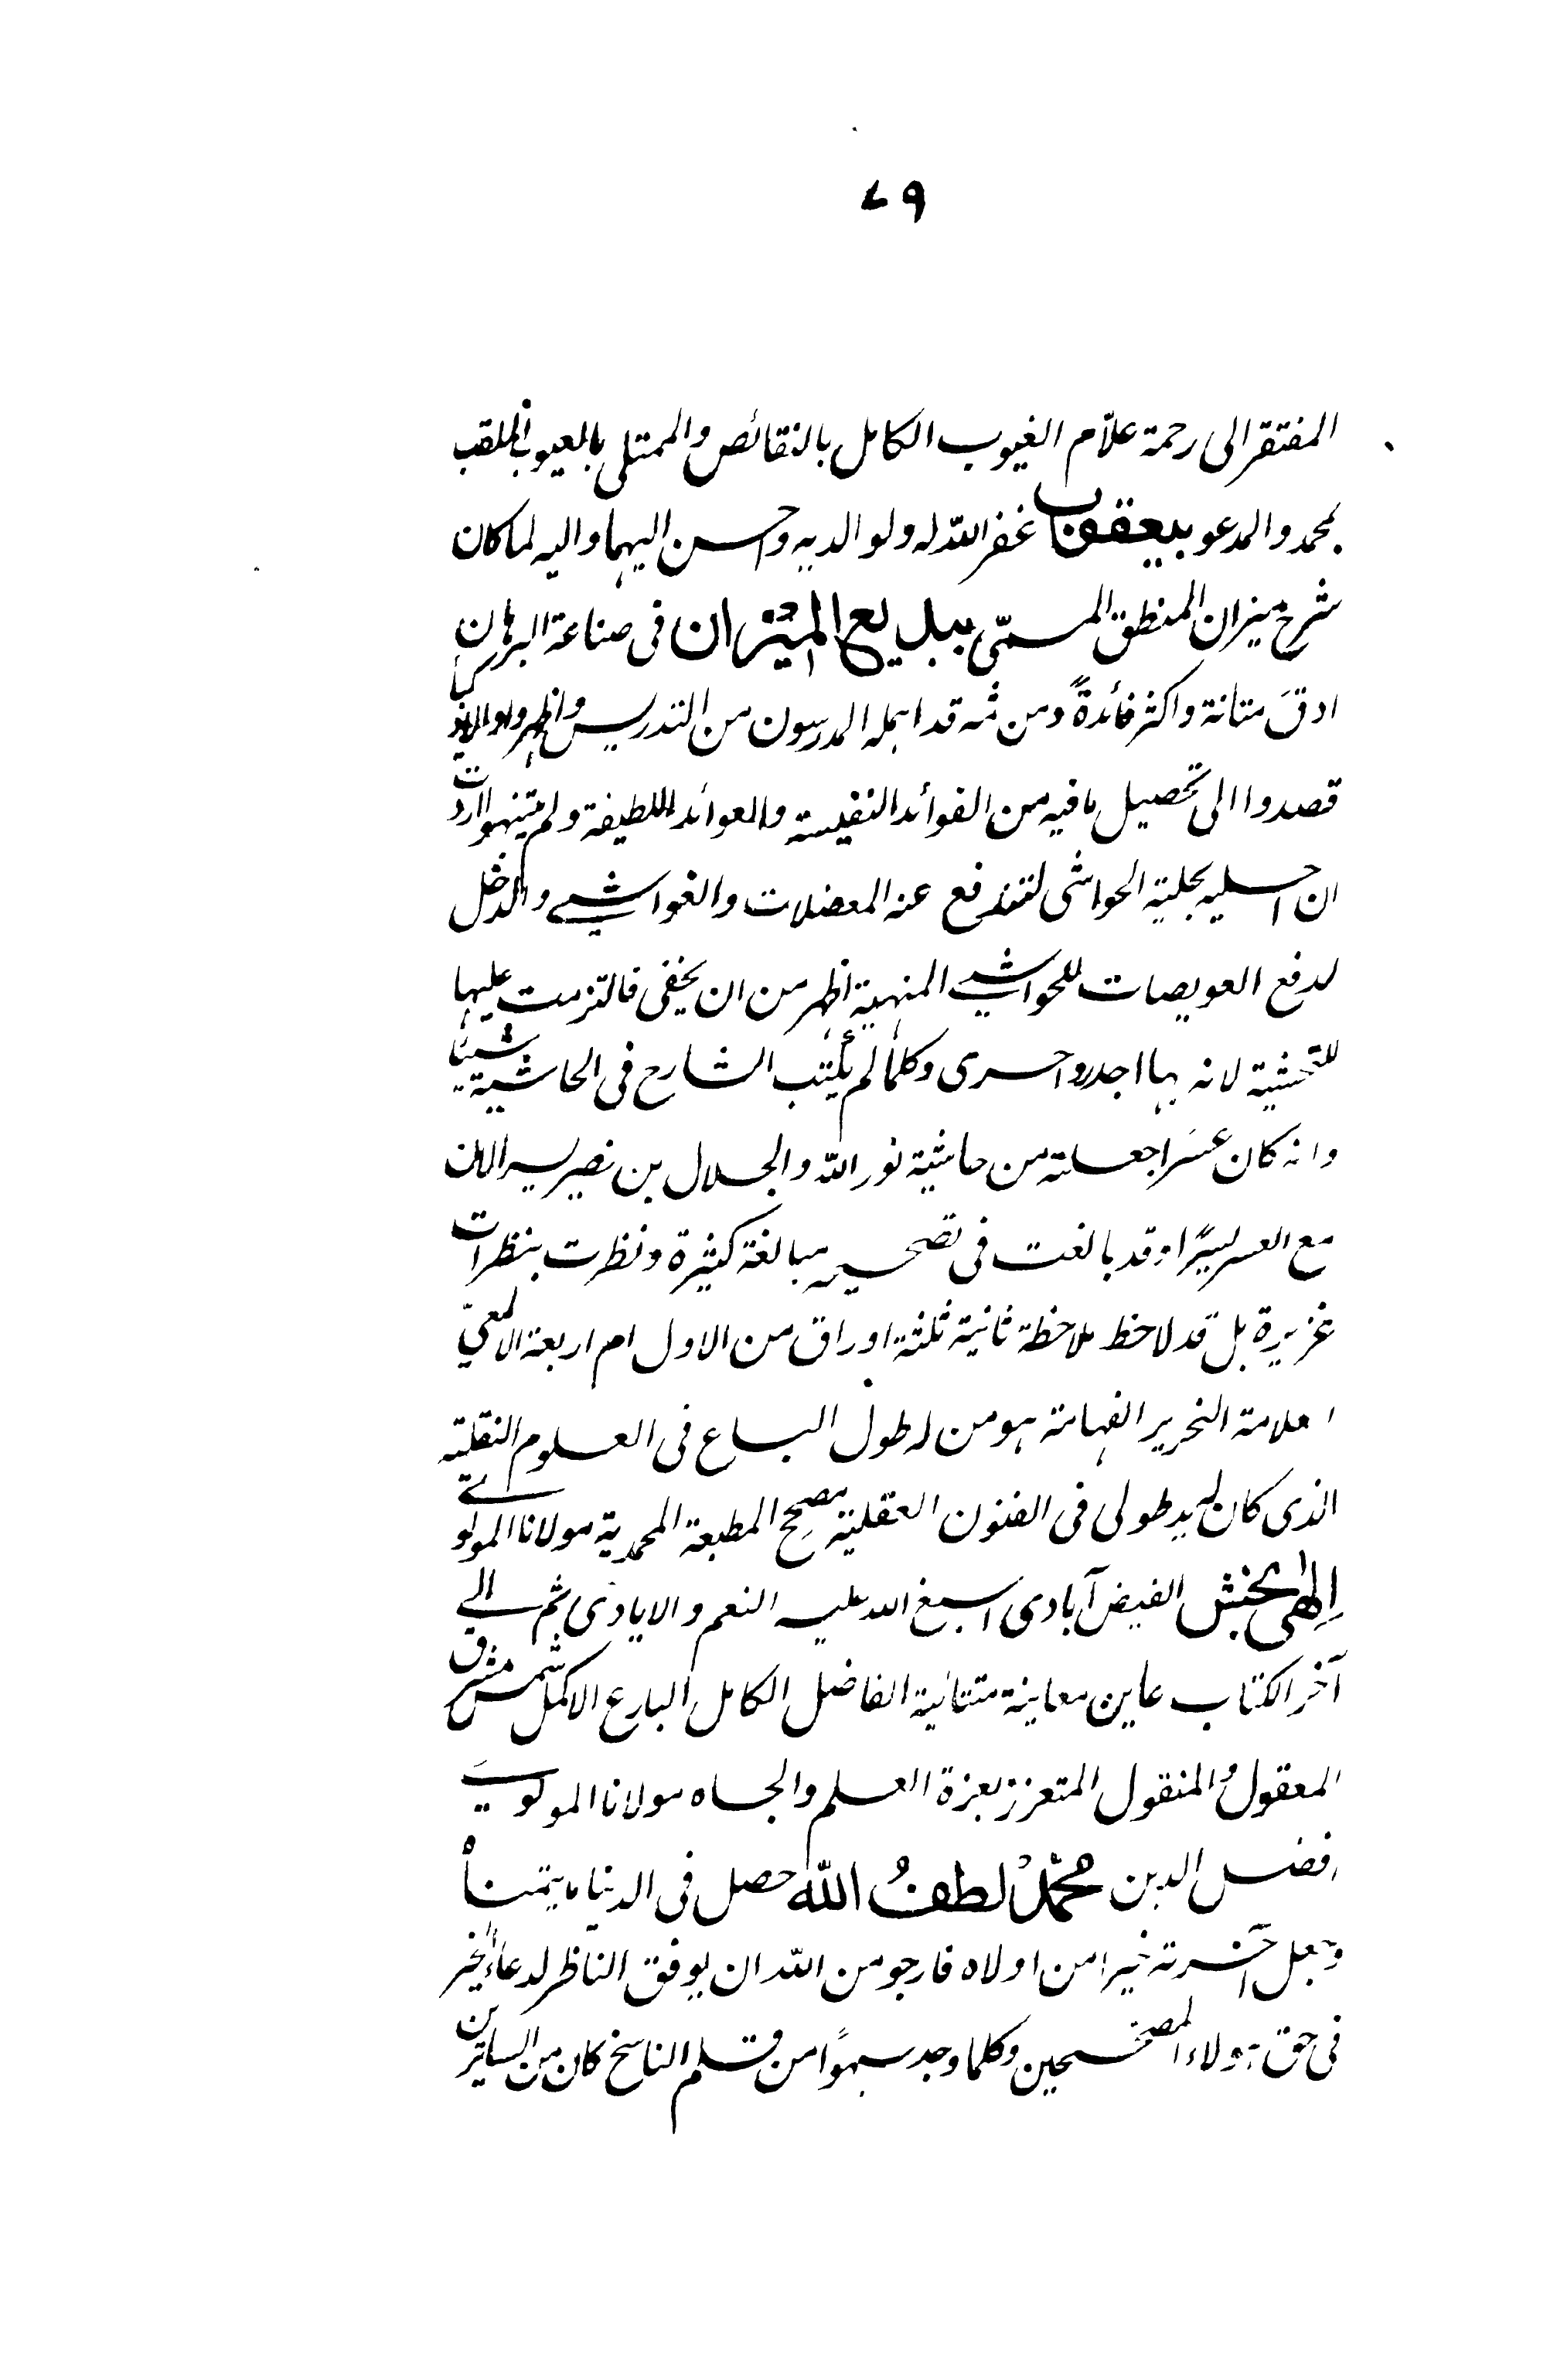 ٧٩
المفتقر الى رحمة علاّم الغيوب الكامل بالنقائص والممتلى بالعيوب الملقب
بمحمد والمدعو بيعقوب غفر الله له ولوالديه واحسن اليهما واليه لما كان
شرح ميزان المنطق المسمّى ببديع الميزان فى صناعة البرهان
ادقّ متانة واكثر فائدةً ومن ثمه قد اهمله المدرسون من التدريس
قصدوا الى تحصيل ما فيه من الفوائد النفيسة والعوائد اللطيفة ولم ينتهوا اردت
ان احليه بحلية الحواشى لتندفع عنه المعضلات والغواشے والدخل
لدفع العويصات للحواشے المنهية اظهر من ان يخفى فالتزمت عليها
للتحشية لانه بها اجدر واحرى وكلما لم يكتب الشارح فى الحاشية شيئا
وانه كان عسرا جعلته من حاشية نور الله والجلال بن نصير يسرا لان
مع العسر يسرًا وقد بالغت فى تصحيحه مبالغة كثيرة ونظرت بنظرات
غزيرة بل قد لاحظ ملاحظة ثانية ثلثة اوراق من الاول ام اربعة الالمعىّ
العلامة النحرير الفهامة هو من له طول الباع فى العلوم النقلية
الذى كان له يد طولى فى الفنون العقلية مصحِح المطبعة المحمدية مولانا المولوے
اِلٰهى بخش الفيض آبادى اسبغ الله عليه النعم والايادى ثم الى
آخر الكتاب عاين معاينة متتانية الفاضل الكامل البارع الاكمل شمس مشرق
المعقول والمنقول المتعزز بعزة العلم والجاه مولانا المولوے
افضل الدين محمد لطف الله حصل فى الدنيا ما يتمناه
وجعل آخرته خيرا من اولاه فارجو من الله ان يوفق الناظر لدعاء الخير
فى حق هولاء المصححين وكلما وجد سهوًا من قلم الناسخ كان من الساترين